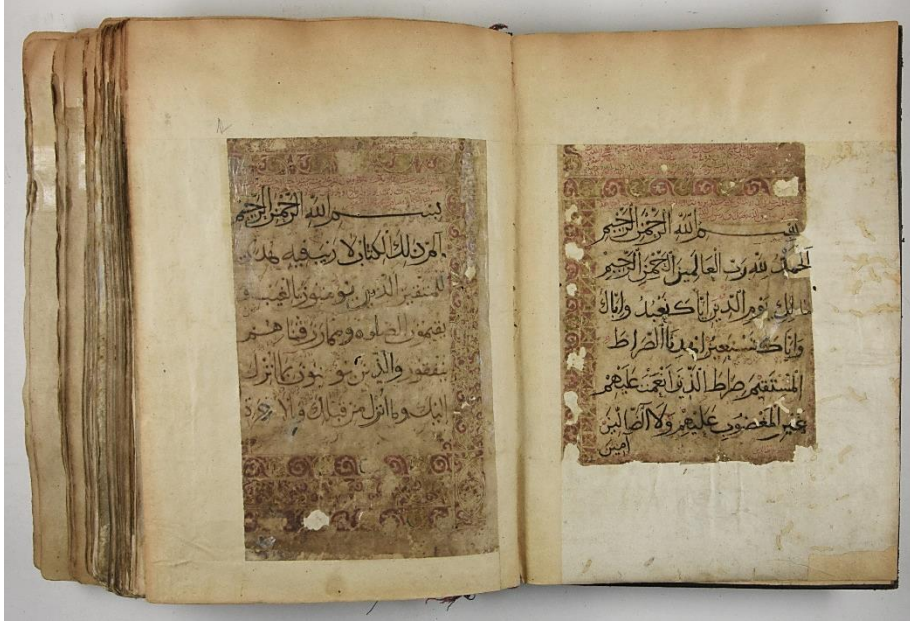 بسم الله الرحمن الرحيم
الحمد لله رب العالمين الرحمن الرحيم
مالك يوم الدين اياك نعبد واياك
واياك نستعين اهدنا الصراط
المستقيم صراط الذين انعمت عليهم
غير المغضوب عليهم ولا الضالين
امين
بسم الله الرحمن الرحيم
الم ذلك الكتاب لا ريب فيه هدى
للمتقين الذين يومنون بالغيب و
يقيمون الصلوه ومما رزقناهم
ينفقون والذين يومنون بما انزل
اليك وما انزل من قبلك